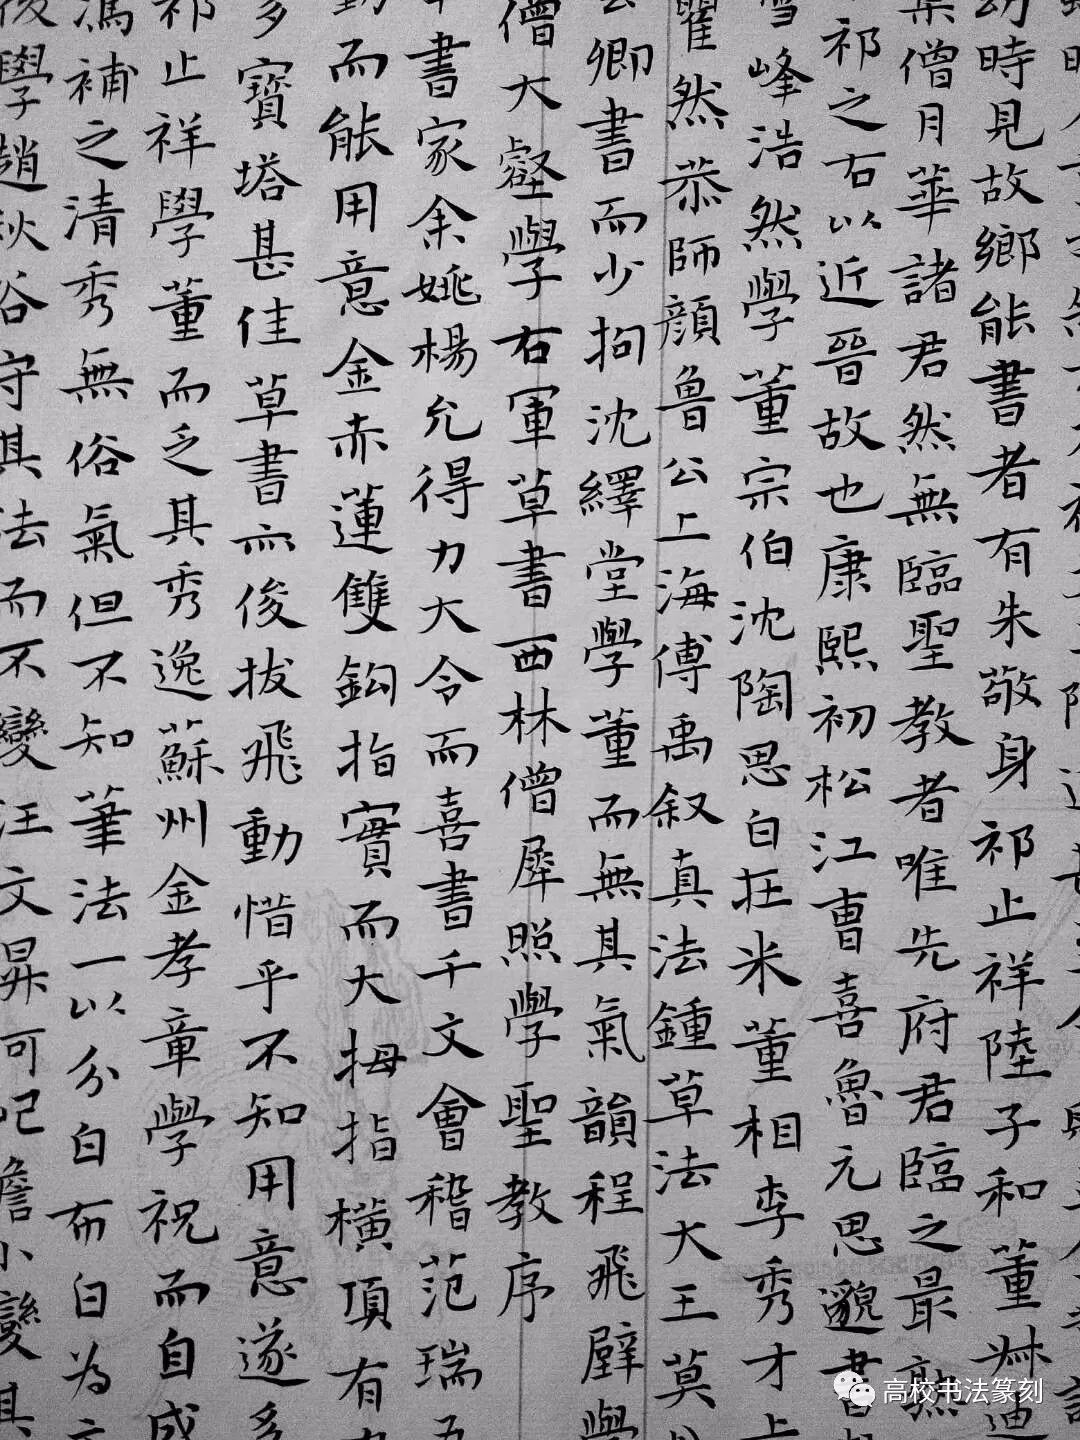 幼時見故鄉能書者有朱敬身祁止祥陸子和董
葉僧月華諸君然無臨聖教者唯先府君臨之最熟
祁之右以近晉故也康熙初松江曹喜魯元思邈書
雪峰浩然學董宗伯沈陶思白在米董相李秀才上
瞿然恭師顏魯公上海傅禹叙真法鍾草法大王莫
公卿書而少拘沈繹堂學董而無其氣韻程飛壁學
僧大壑學右軍草書西林僧犀照學聖教序
書家余姚楊允得力大令而喜書千文會稽范瑞五
動而能用意金赤蓮雙鈎指實而大拇指橫頂有力
多寶塔甚佳草書亦俊拔飛動惜乎不知用意遂多
祁止祥學董而乏其秀逸蘇州金孝章學祝而自成
馮補之清秀無俗氣但不知筆法一以分白布白為
後學趙秋谷守其法而不變汪文昇可記 小變其
高校书法篆刻